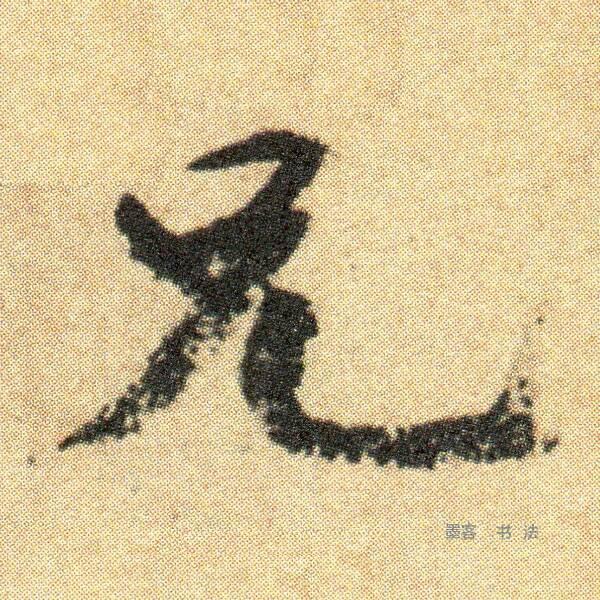 兄
墨客 书 法